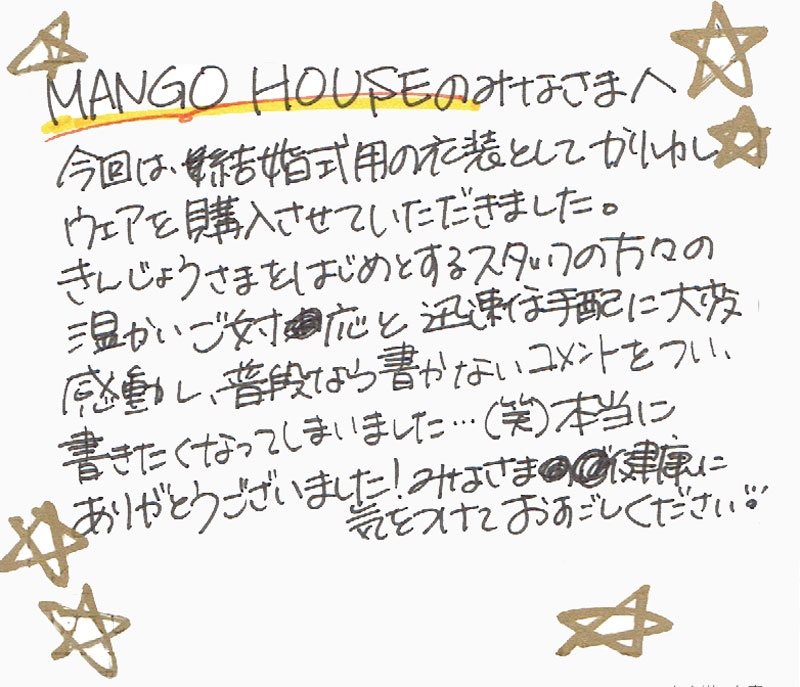 MANGO HOUSEのみなさまへ
今回は、結婚式用の衣装としてかりゆし
ウェアを購入させていただきました。
きんじょうさまをはじめとするスタッフの方々の
温かいご対応と迅速な手配に大変
感動し、普段なら書かないコメントをつい、
書きたくなってしまいました…(笑)本当に
ありがとうございました!みなさま健康に
気をつけておすごしください